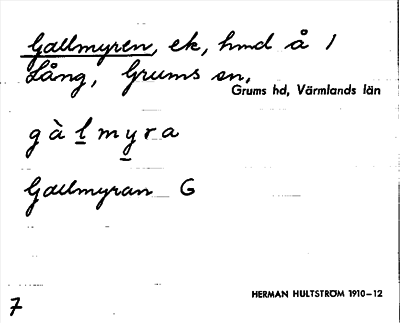 Gallmyren, ek, hmd å 1
Lång, Grums sn,
Grums hd, Värmlands län
gàlmyra
Gallmyran G
HERMAN HULTSTRÖM 1910–12
7